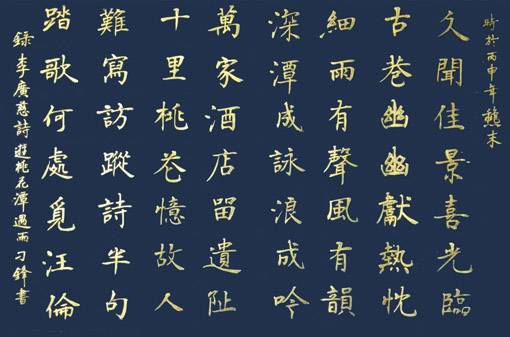 時於丙申年龝末
久聞佳景喜光臨
古巷幽幽獻熱忱
細雨有聲風有韻
深潭成詠浪成吟
萬家酒店留遺阯
十里桃花憶故人
難寫訪蹤詩半句
踏歌何處覓汪倫
錄李廣慈詩遊桃花潭遇雨刁鋒書